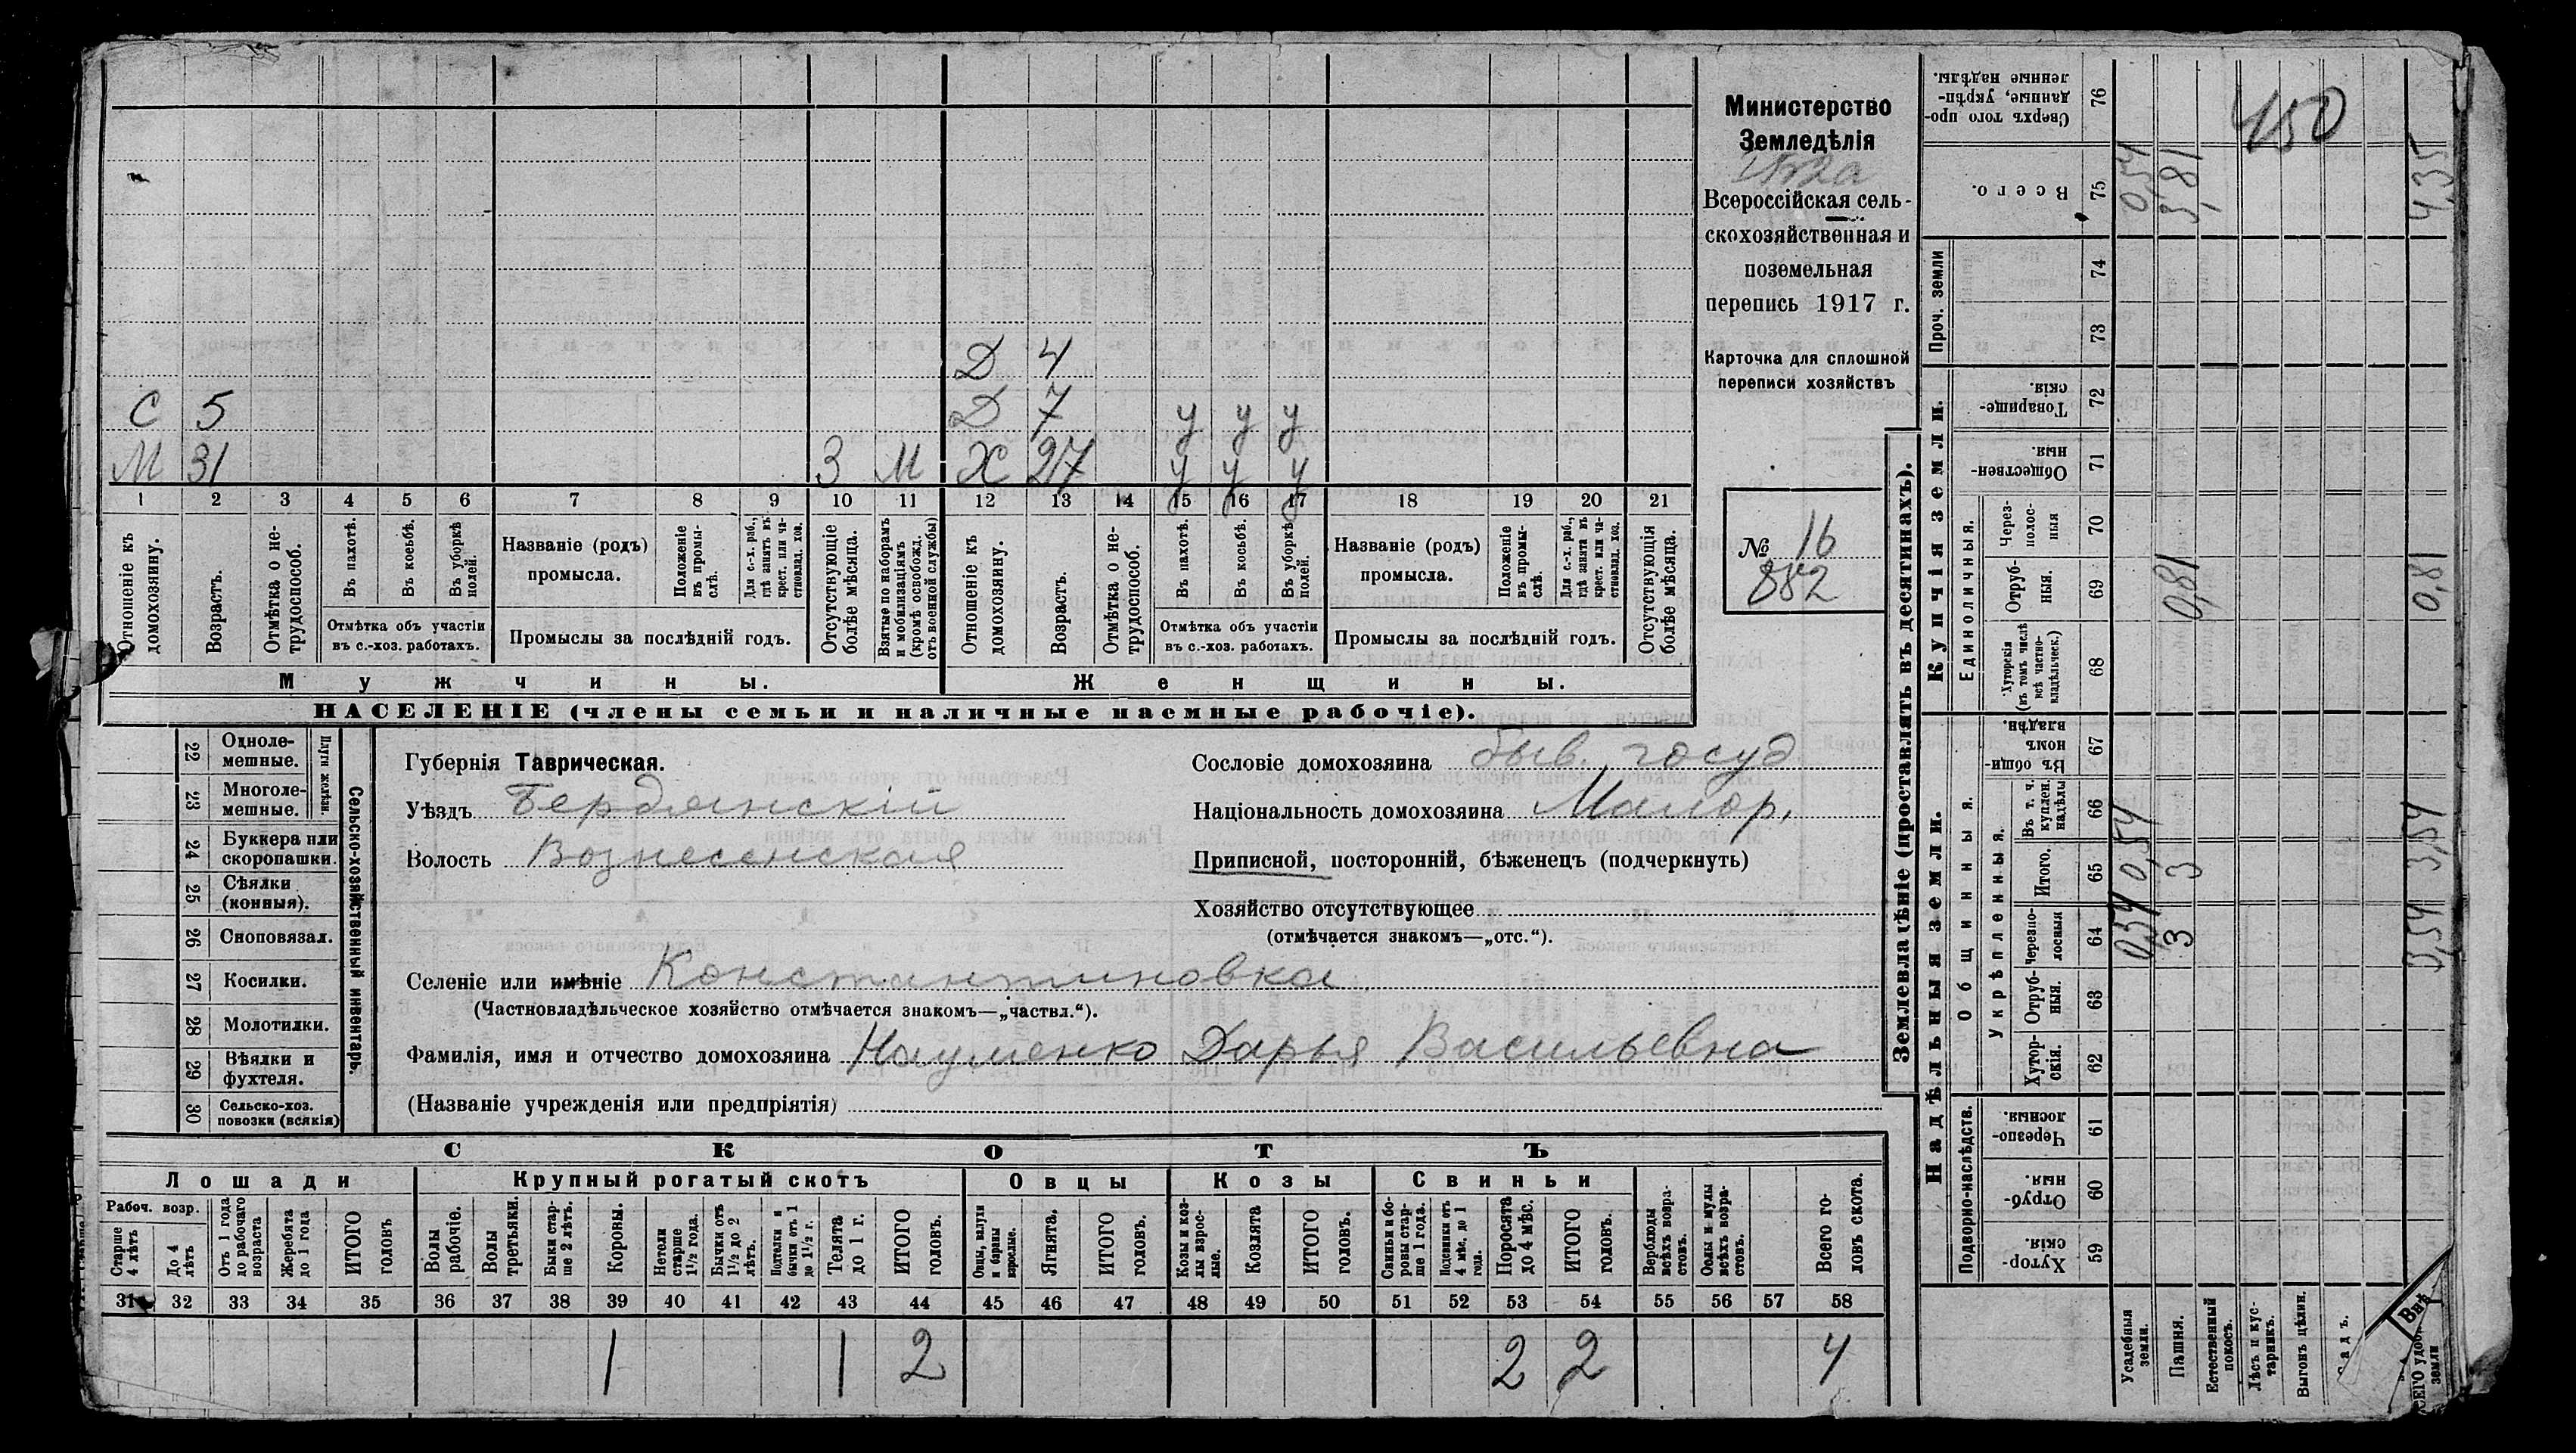 Министерство
Земледѣлія
Всероссійская сель-
скохозяйственная и
поземельная
перепись 1917 г.
Карточка для сплошной
переписи хозяйствъ
№ 16
882
Д 4
С 5 Д 7 у у у
М 31 3 М Х 27 у у у
1 2 3 4 5 6 7 8 9 10 11 12 13 14 15 16 17 18 19 20 21
Отношеніе къ домохозяину.
Возрастъ.
Отмѣтка о не-трудоспособ.
Въ пахотѣ.
Въ косьбѣ.
Въ уборкѣ полей.
Отмѣтка объ участіи
въ с.-хоз. работахъ.
Названіе (родъ)
промысла.
Положеніе въ промы-слѣ.
Для с.-х. раб., гдѣ занятъ въ крест. или ча-стновлад. хоз.
Промыслы за послѣдній годъ.
Отсутствующіе болѣе мѣсяца.
Взятые по наборамъ и мобилизаціямъ (кромѣ освобожд. отъ военной службы)
Отношеніе къ домохозяину.
Возрастъ.
Отмѣтка о не-трудоспособ.
Въ пахотѣ.
Въ косьбѣ.
Въ уборкѣ полей.
Отмѣтка объ участіи
въ с.-хоз. работахъ.
Названіе (родъ)
промысла.
Положеніе въ промы-слѣ.
Для с.-х. раб., гдѣ занята въ крест. или ча-стновлад. хоз.
Промыслы за послѣдній годъ.
Отсутствующія болѣе мѣсяца.
Мужчины. Женщины.
НАСЕЛЕНІЕ (члены семьи и наличные наемные рабочіе).
22 Одноле-мешные.
23 Многоле-мешные.
Плуги желѣзн.
24 Буккера или скоропашки.
25 Сѣялки (конныя).
26 Сноповязал.
27 Косилки.
28 Молотилки.
29 Вѣялки и фухтеля.
30 Сельско-хоз. повозки (всякія)
Сельско-хозяйственный инвентарь.
Губернія Таврическая.
Уѣздъ Бердянскій
Волость Вознесенская
Сословіе домохозяина быв. госуд
Національность домохозяина Малор.
Приписной, посторонній, бѣженецъ (подчеркнуть)
Хозяйство отсутствующее
(отмѣчается знакомъ—„отс.“).
Селеніе или имѣніе Константиновка
(Частновладѣльческое хозяйство отмѣчается знакомъ—„частвл.“).
Фамилія, имя и отчество домохозяина Науменко Дарья Васильевна
(Названіе учрежденія или предпріятія)
СКОТЪ
Лошади Крупный рогатый скотъ Овцы Козы Свиньи
Рабоч. возр.
Старше 4 лѣтъ
До 4 лѣтъ
Отъ 1 года до рабочаго возраста
Жеребята до 1 года
ИТОГО головъ
Волы рабочіе.
Волы третьяки.
Быки стар-ше 2 лѣтъ.
Коровы.
Нетели старше 1½ года.
Бычки отъ 1½ до 2 лѣтъ.
Подтелки и бычки отъ 1 до 1½ г.
Телята до 1 г.
ИТОГО головъ.
Овцы, валухи и бараны взрослые.
Ягнята.
ИТОГО головъ.
Козы и коз-лы взрос-лые.
Козлята
ИТОГО головъ.
Свиньи и бо-ровы стар-ше 1 года.
Подсвинки отъ 4 мѣс. до 1 года.
Поросята до 4 мѣс.
ИТОГО головъ.
Верблюды всѣхъ возра-стовъ.
Ослы и мулы всѣхъ возра-стовъ.
Всего го-ловъ скота.
31 32 33 34 35 36 37 38 39 40 41 42 43 44 45 46 47 48 49 50 51 52 53 54 55 56 57 58
1 1 2 2 2 4
Землевладѣніе (проставлять въ десятинахъ).
Надѣльныя земли.
Купчія земли.
Проч. земли
Подворно-наслѣдств.
Общинныя.
Укрѣпленныя.
Единоличныя.
Сверхъ того про-данные, укрѣп-ленные надѣлы. 76
Всего. 75 0,54 3,81 4,35
450
74
73
Товарище-скія. 72
Обществен-ныя. 71
Через-полос-ныя 70
Отруб-ныя. 69 0,81 0,81
Хуторскія (въ томъ числѣ всѣ частно-владѣльческ.) 68
Въ общи-номъ владѣн. 67
Въ т. ч. куплен. надѣлы 66
Итого. 65 0,54 3 3,54
Черезпо-лосныя 64 0,54 3
Отруб-ныя. 63
Хутор-скія. 62
Черезпо-лосныя. 61
Отруб-ныя. 60
Хутор-скія. 59
Усадебныя земли.
Пашня.
Естественный покосъ.
Лѣсъ и кус-тарникъ.
Выгонъ цѣлин.
Садъ.